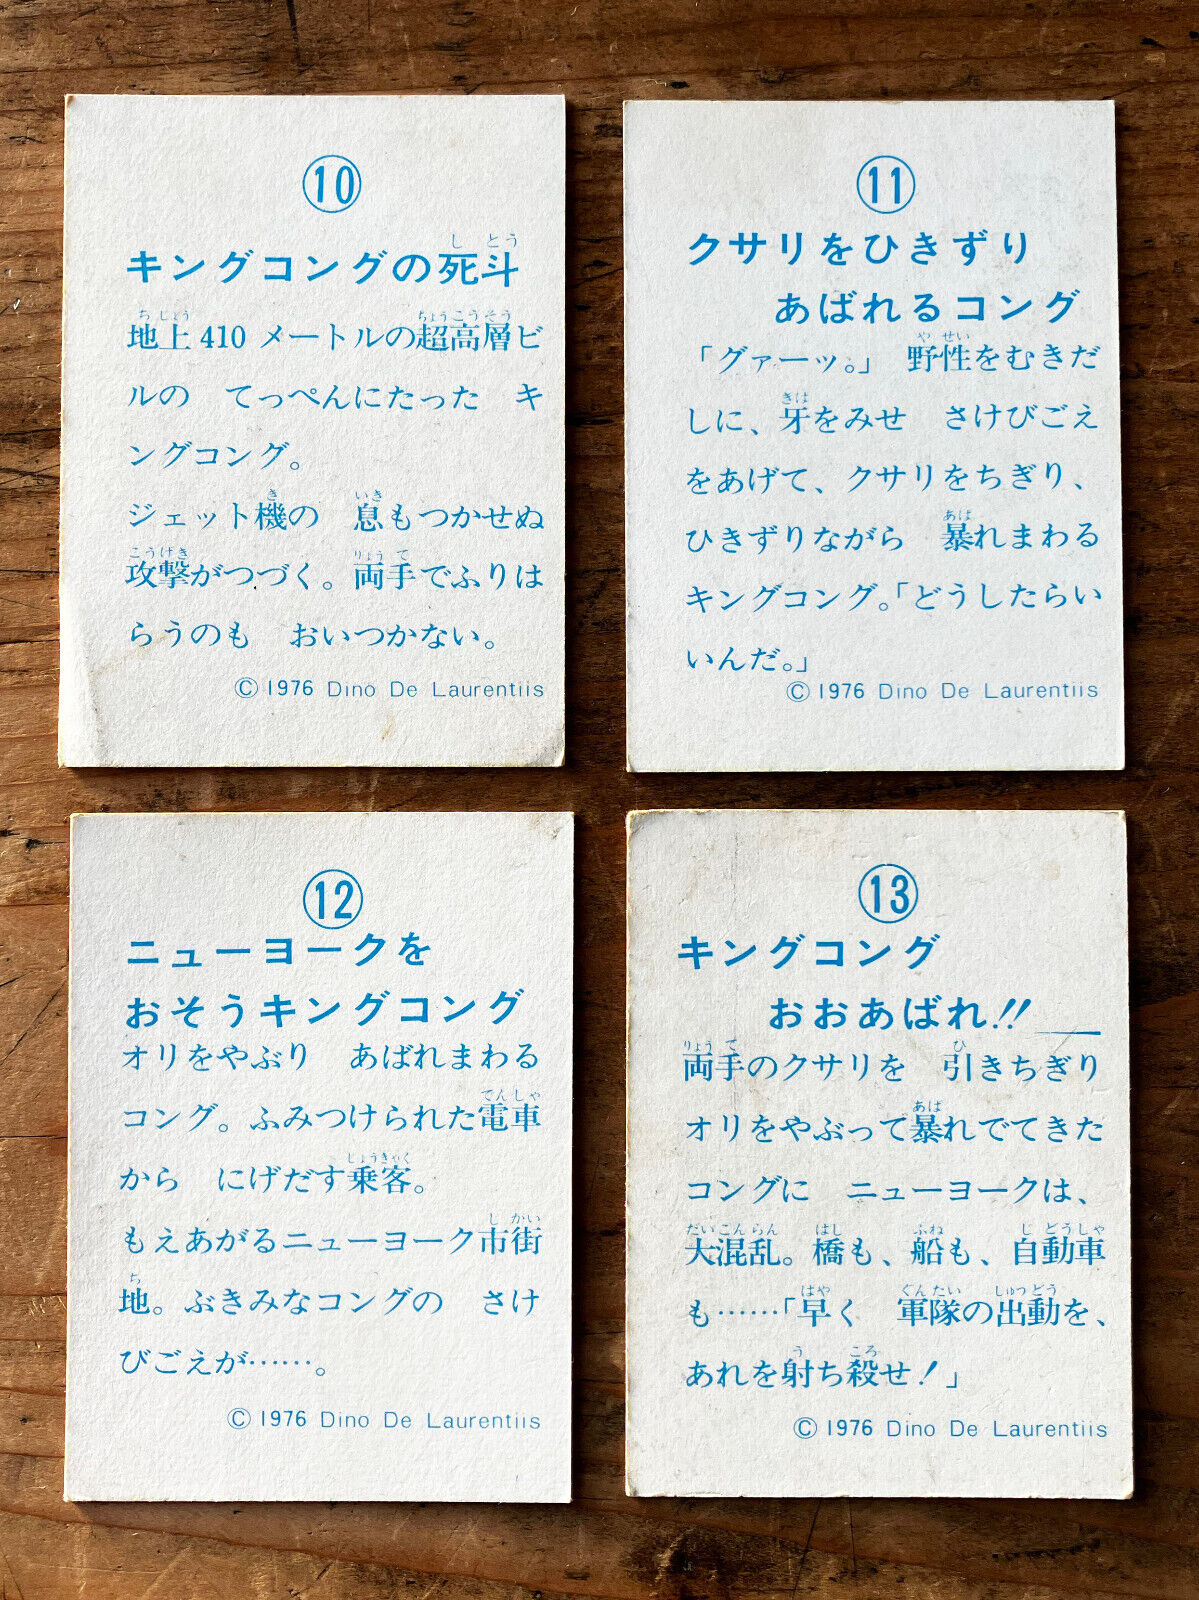 ⑩
キングコングの死斗
地上410メートルの超高層ビ
ルの　てっぺんにたった　キ
ングコング。
ジェット機の　息もつかせぬ
攻撃がつづく。両手でふりは
らうのも　おいつかない。
Ⓒ1976 Dino De Laurentiis
⑪
クサリをひきずり
あばれるコング
「グァーッ。」 野性をむきだ
しに、牙をみせ　さけびごえ
をあげて、クサリをちぎり、
ひきずりながら　暴れまわる
キングコング。「どうしたらい
いんだ。」
Ⓒ1976 Dino De Laurentiis
⑫
ニューヨークを
おそうキングコング
オリをやぶり　あばれまわる
コング。ふみつけられた電車
から　にげだす乗客。
もえあがるニューヨーク市街
地。ぶきみなコングの　さけ
びごえが……。
Ⓒ1976 Dino De Laurentiis
⑬
キングコング
おおあばれ!!
両手のクサリを　引きちぎり
オリをやぶって暴れでてきた
コングに　ニューヨークは、
大混乱。橋も、船も、自動車
も……「早く　軍隊の出動を、
あれを射ち殺せ！」
Ⓒ1976 Dino De Laurentiis